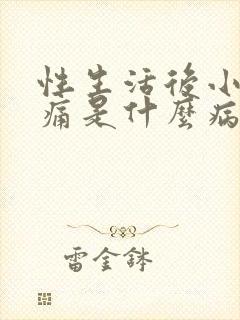 性生活後小
痛是什麼病
雷金鉢